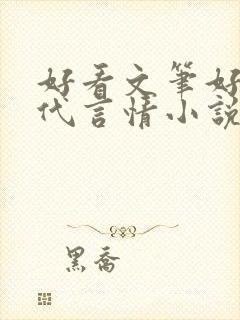 好看文筆好
代言情小說
黑喬